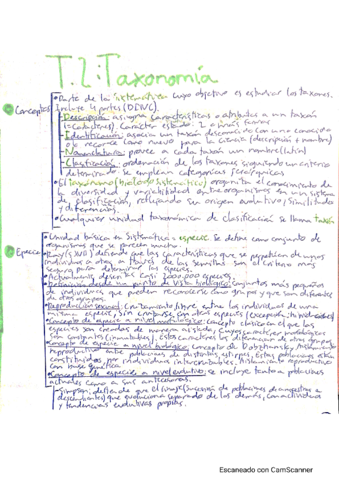 T.2: Taxonomía
Conceptos
• Parte de la sistemática cuyo objetivo es estudiar los taxones.
Incluye 4 partes (DINC).
- Descripción: asigna características o atributos a un taxón
(=caracteres). Carácter estado: 1 o más formas
- Identificación: asocia un taxón desconocido con uno conocido
o se reconoce como nuevo para la ciencia (descripción + nombre)
- Nomenclatura: provee a cada taxón un nombre (latín)
- Clasificación: ordenación de los taxones siguiendo un criterio
determinado. Se emplean categorías jerárquicas
• El taxónomo (biólogo sistemático) organiza el conocimiento de
la diversidad y variabilidad de los organismos en un sistema
de clasificación, reflejando su origen evolutivo, similitudes
y diferencias.
• Cualquier unidad taxonómica de clasificación se llama taxón
Especie
• Unidad básica en Sistemática = especie. Se define como conjunto de
organismos que se parecen mucho.
• Ray (s.XVII) definió que las características que se perpetúan de unos
individuos a otros a través de las semillas son el criterio más
seguro para determinar las especies.
• Actualmente, descritas casi 2.000.000 especies.
• Definición desde un punto de vista biológico: conjuntos más pequeños
de individuos que pueden reconocerse como grupo y que son diferentes
de otros grupos.
• Reproducción sexual: cruzamiento libre entre los individuos de una
misma especie, sin cruzarse con otras especies
• Concepto de especie a nivel morfológico: concepto clásico en el que las
especies son creadas de manera aislada, cuyos caracteres morfológicos
son constantes (inmutables). Estos caracteres las diferencian de otros grupos.
• Concepto de especie a nivel biológico: concepto de Dobzhansky. Aislamiento
reproductivo entre poblaciones de distintas estirpes. Estas poblaciones están
constituidas por individuos interfértiles. Aislamiento reproductivo
con base genética
• Concepto de especies a nivel evolutivo: se incluye tanto a poblaciones
actuales como a sus antecesoras.
• Simpson: define de que el linaje (sucesión de poblaciones de ancestros a
descendientes) que evoluciona separado de los demás, con actividad
y tendencias evolutivas propias.
Escaneado con CamScanner